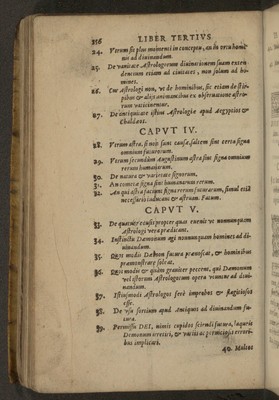 356 LIBER TERTIVS
24. Verum sit plus momenti in conceptu, an in ortu homi-
nis ad diuinandum.
25. De vanitate Astrologorum diuinationem suam exten-
dentium etiam ad ciuitates, non solum ad ho-
mines.
26. Cur Astrologi non, vt de hominibus, sic etiam de stir-
pibus & alijs animantibus ex obseruatione astro-
rum vaticinentur.
27. De antiquitate istius Astrologiæ apud Aegyptios &
Chaldæos.
CAPVT IV.
28. Verum astra, si non sunt causæ, saltem sint certa signa
omnium futurorum.
29. Verum secundùm Augustinum astra sint signa omnium
rerum humanarum.
30. De natura & varietate signorum.
31. An cometæ signa sint humanarum rerum.
32. An qui astra faciunt signa rerum futurarum, simul etiã
necessariò inducant & astrorum Fatum.
CAPVT V.
33. De quatuor causis propter quas euenit vt nonnunquam
Astrologi vera prædicant.
34. Instinctu Dæmonum agi nonnunquam homines ad di-
uinandum.
35. Quot modis Dæmon futura prænoscat, & hominibus
præmonstrare soleat.
36. Quot modis & quàm grauiter peccent, qui Dæmonum
vel istorum Astrologorum opera vtuntur ad diui-
nandum.
37. Istiusmodi Astrologos ferè improbos & flagitiosos
esse.
38. De vsu sortium apud Antiquos ad diuinandum fu-
tura.
39. Permissu DEI, nimis cupidos sciendi futura, laqueis
Dæmonum irretiri, & varijs ac perniciosis errori-
bus implicari.
40. Multos